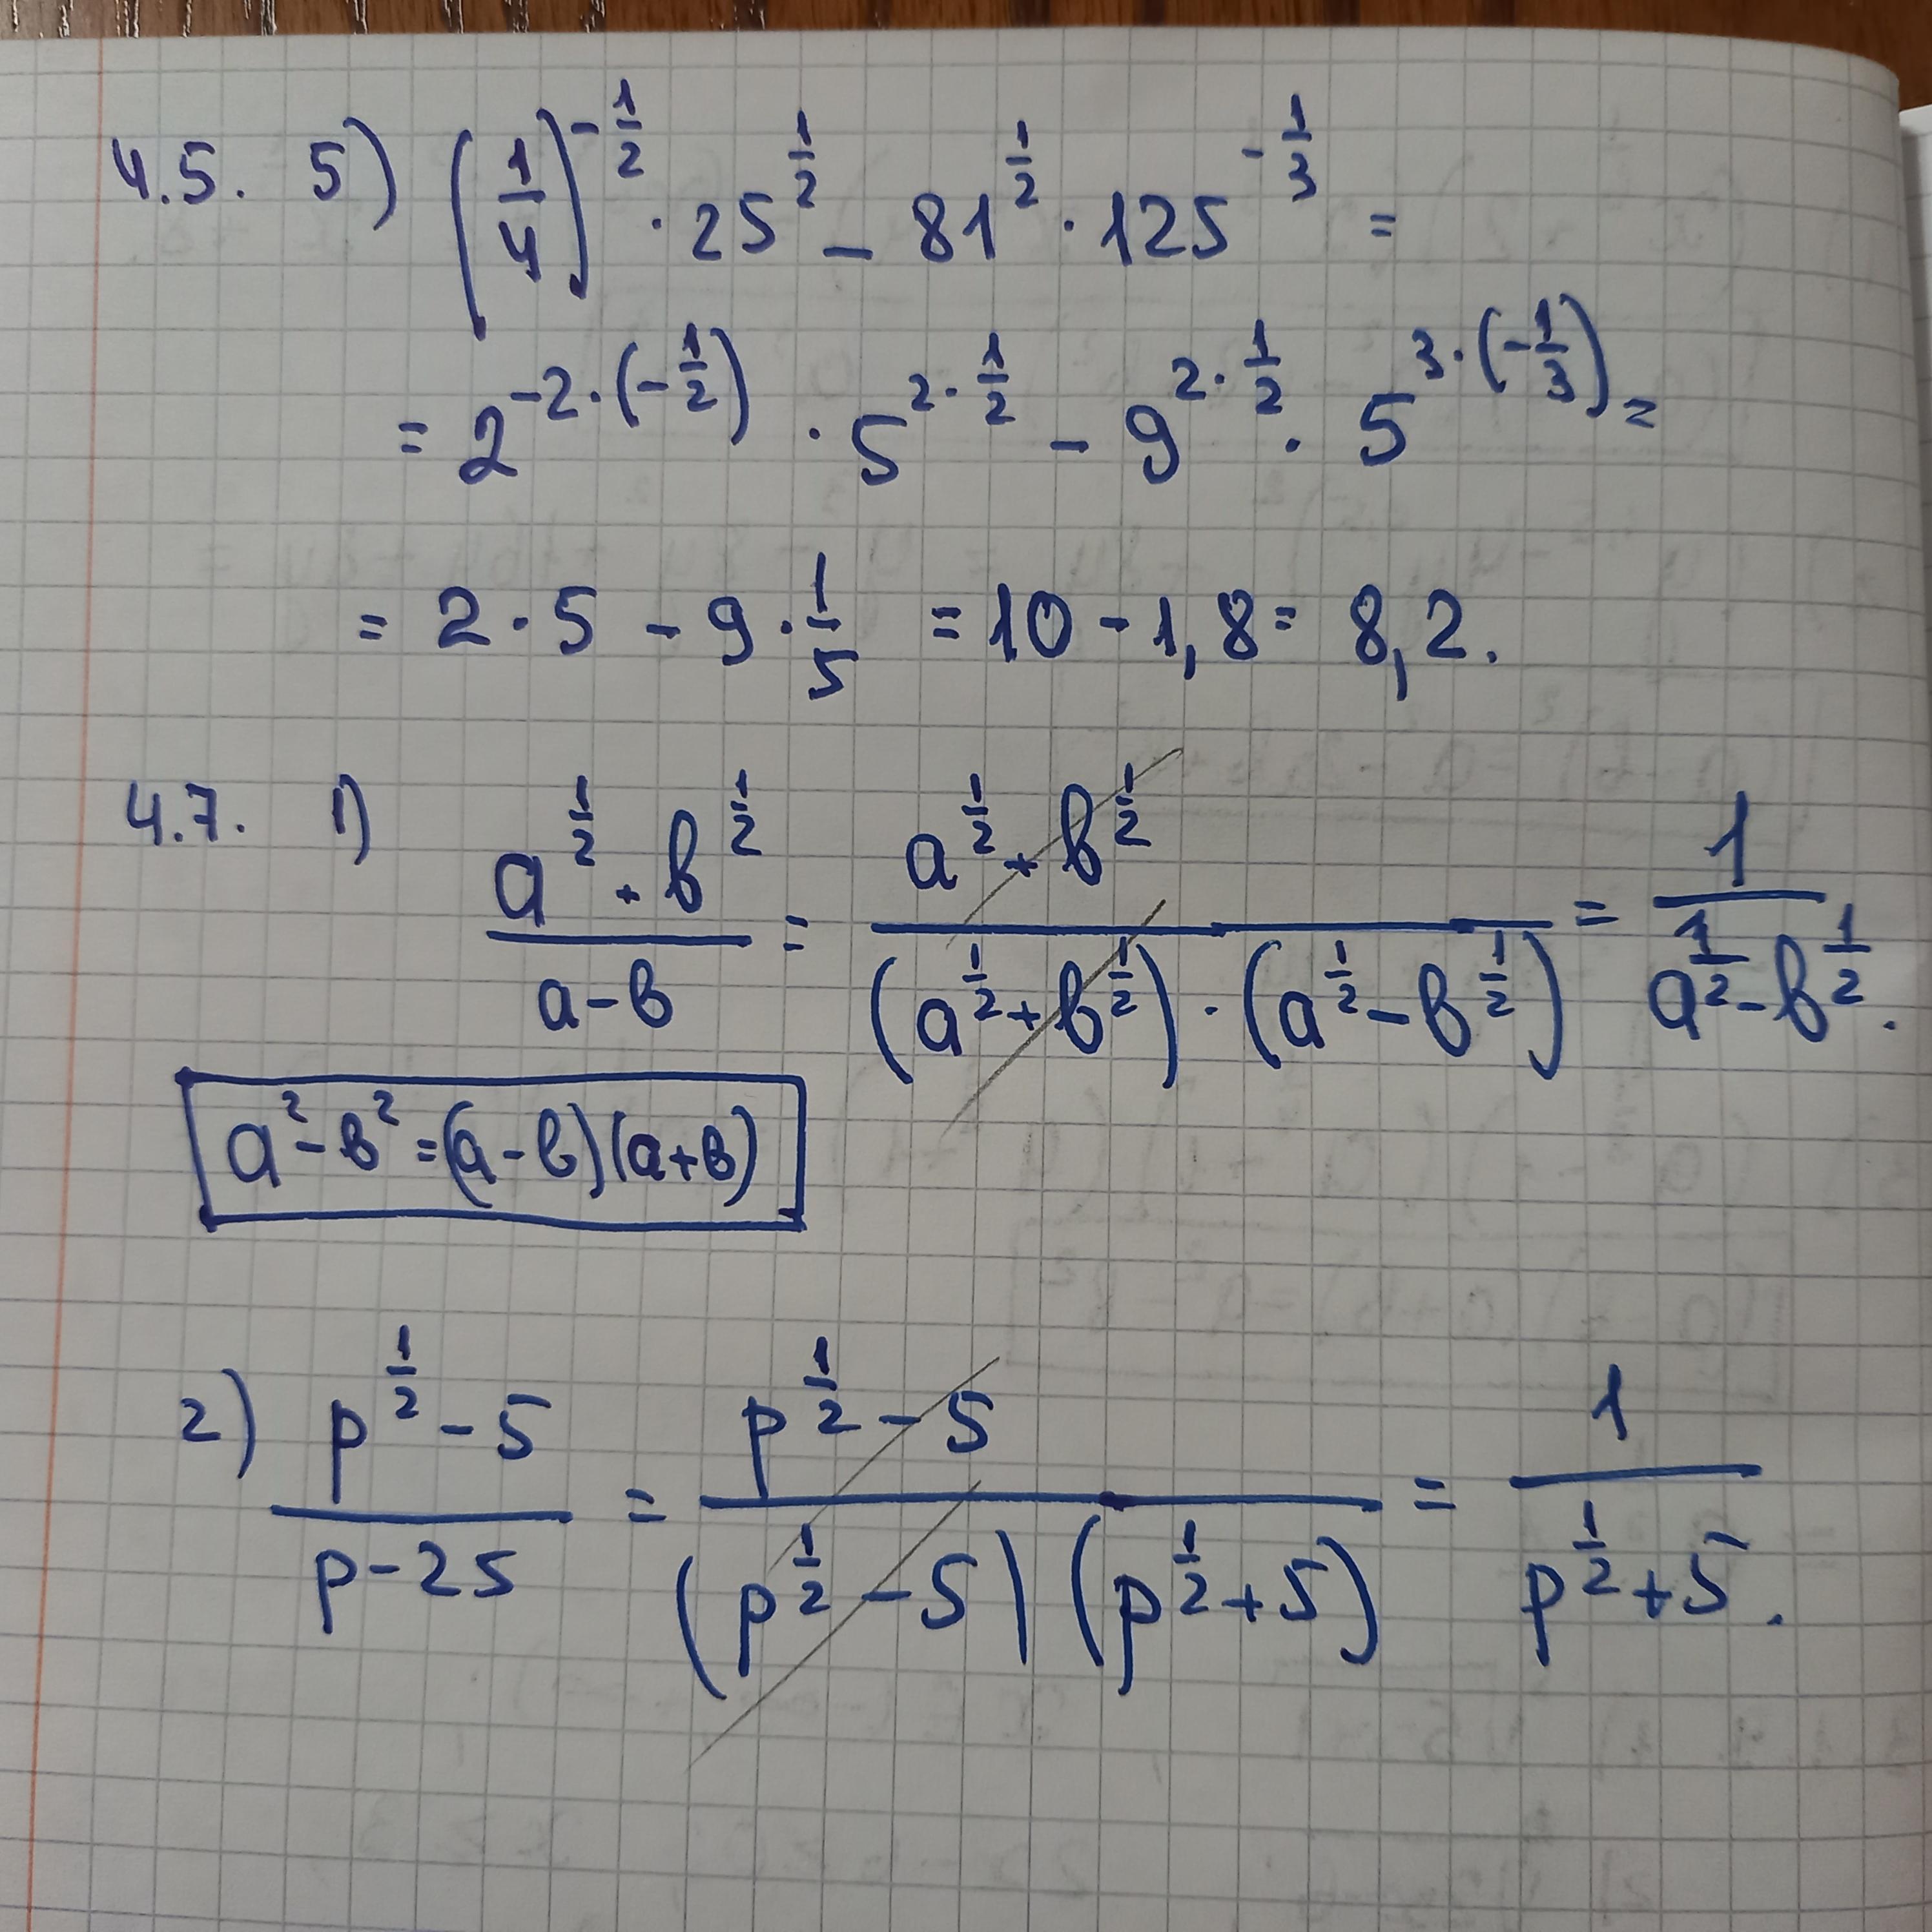 4.5. 5) (1/4)^(-1/2) · 25^(1/2) - 81^(1/2) · 125^(-1/3) =
= 2^(-2·(-1/2)) · 5^(2·1/2) - 9^(2·1/2) · 5^(3·(-1/3)) =
= 2·5 - 9·1/5 = 10 - 1,8 = 8,2.
4.7. 1) (a^(1/2) + b^(1/2))/(a-b) = (a^(1/2) + b^(1/2))/((a^(1/2) + b^(1/2))·(a^(1/2) - b^(1/2))) = 1/(a^(1/2) - b^(1/2)).
a² - b² = (a-b)(a+b)
2) (p^(1/2) - 5)/(p-25) = (p^(1/2) - 5)/((p^(1/2) - 5)(p^(1/2) + 5)) = 1/(p^(1/2) + 5).